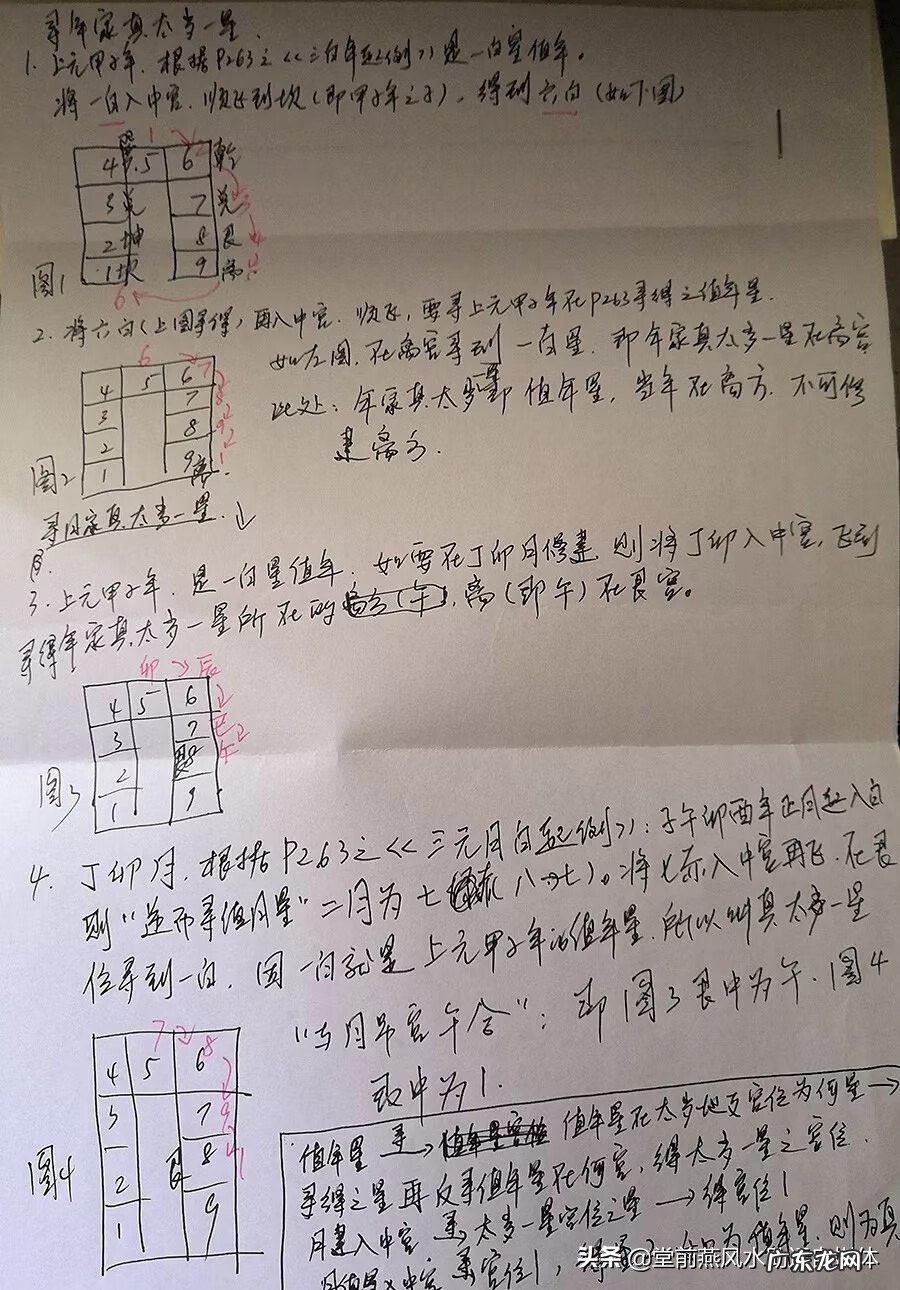 寻年家真太岁一星
1. 上元甲子年,根据P263之<<三白年起例>>是一白星值年。
将一白入中宫,顺飞到坎(即甲子年之子),得到六白(如下图)
1
4 巽 5 6 乾
3 兑 7 兑
2 坤 8 艮
1 坎 9 离
图1
6
2. 将六白(上图寻得)再入中宫,顺飞,要寻上元甲子年在P263寻得之值年星.
如左图,在离宫寻到一白星,即年家真太岁一星在离宫
此处:年家真太岁一星即值年星,当年在离方,不可修
建离方.
6 7
4 5 6
3 7 8
2 8 9
1 9 离 1
图2
寻月家真太岁一星
3. 上元甲子年,是一白星值年,如要在丁卯月修建,则将丁卯入中宫,飞到
寻得年家真太岁一星所在的离方(午),离(即午)在艮宫。
卯 辰
4 5 6
3 7 巳
2 艮 8 午
1 9
图3
4. 丁卯月,根据P263之<<三元月白起例>>:子午卯酉年正月起八白
则"逆而寻值月星"二月为七 八→七)。将七赤入中宫再飞,在艮
位寻到一白,因一白就是上元甲子年的值年星,所以叫真太岁一星
"与月吊宫午合":即图3艮中为午,图4
艮中为1.
7 8
4 5 6
3 7 9
2 艮 8 1
1 9
图4
值年星 寻→ 值年星在太岁地支宫位为何星→
寻得之星再反寻值年星在何宫,得太岁一星之宫位.
月建入中宫,寻太岁一星宫位之星→得宫位1
月值星入中宫寻宫位1, 为值年星,则为真
头条@堂前燕风水
广东龙网